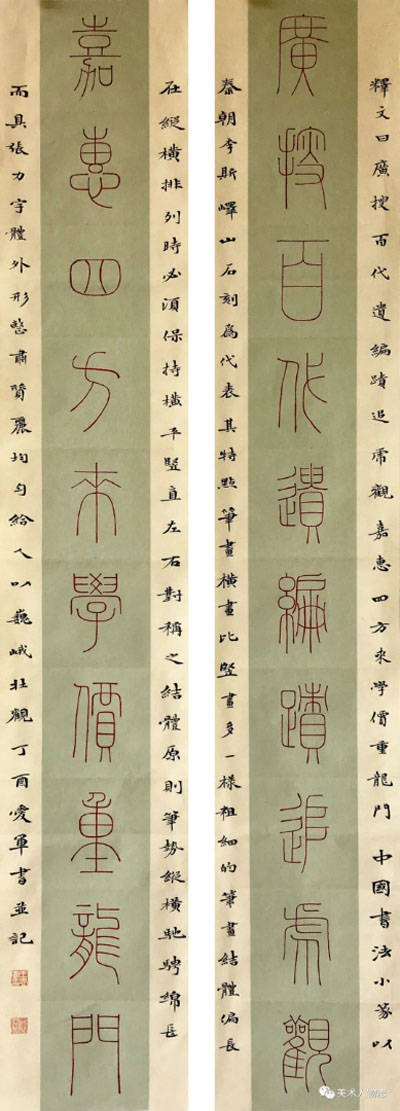 釋文曰廣搜百代遺編蹟追虎觀嘉惠四方來学價重龍門 中國書法小篆以
廣搜百代遺編蹟追虎觀
秦朝李斯嶧山石刻為代表其特點筆畫橫畫比竪畫多一樣粗細的筆畫結體偏長
在縱橫排列時必須保持橫平竪直左右對稱之結體原則筆勢縱橫馳騁綿長
嘉惠四方來學價重龍門
而具張力字體外形整肅質麗均匀給人以巍峨壯觀丁酉愛軍書並記
美术人